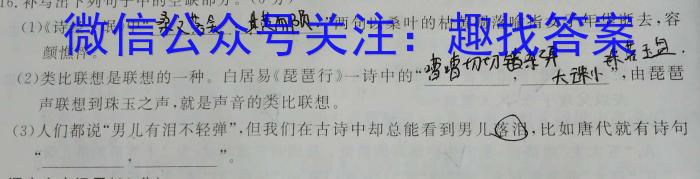 16.补写出下列句子中的空缺部分。
(1)《诗
微信公众号关注：趣找答案
颜憔悴。
(2)类比联想是联想的一种。白居易《琵琶行》一诗中的“嘈嘈切切错杂弹，大珠小珠落玉盘”,由琵琶
声联想到珠玉之声,就是声音的类比联想。
(3)人们都说“男儿有泪不轻弹”,但我们在古诗中却总能看到男儿落泪,比如唐代就有诗句
“________,________”。